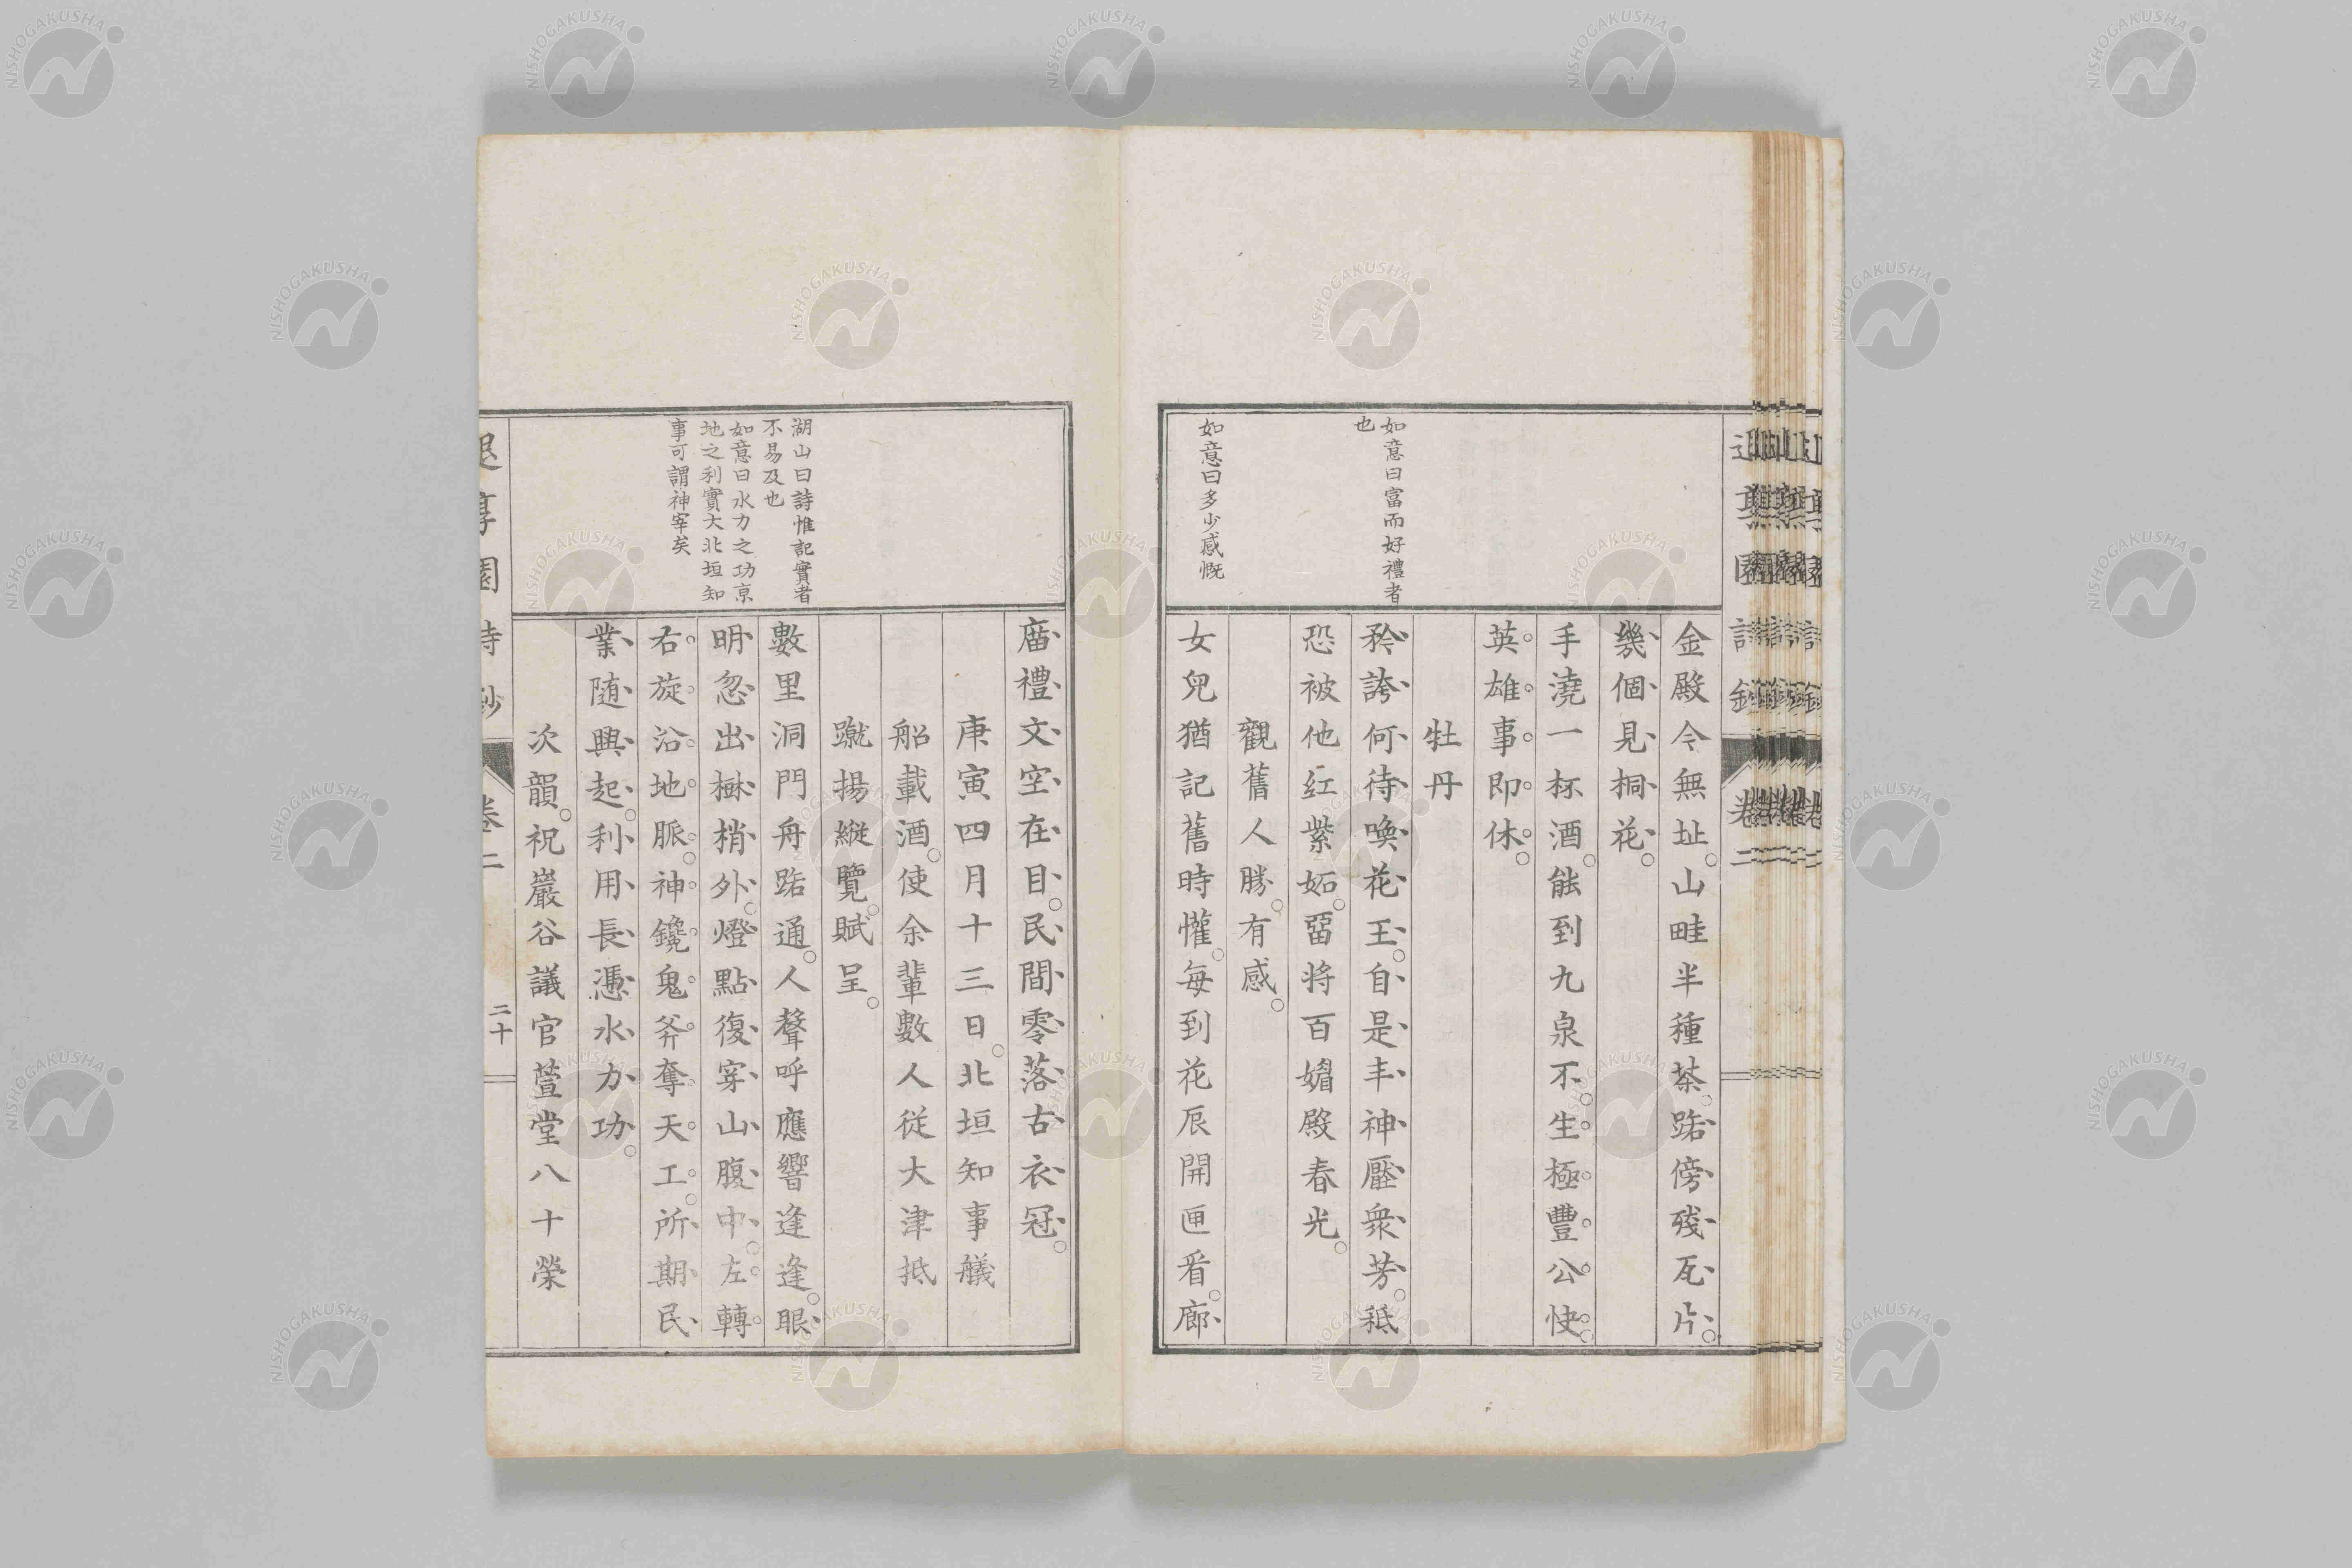 如意曰富而好禮者
也
如意曰多少感慨
金殿令無址。山畦半種茶。踣傍殘瓦片。
幾個見桐花。
手澆一杯酒。能到九泉不。生極豐公快。
英雄事即休。
牡丹
矜誇何待喚花王。自是丰神壓衆芳。秪
恐被他紅紫妬。畱將百媚殿春光。
觀舊人勝。有感。
女兒猶記舊時懽。每到花辰開匣看。廊
湖山曰詩惟記實者
不易及也
如意曰水力之功京
地之利實大北垣知
事可謂神宰矣
庿禮文空在目。民間零落古衣冠。
庚寅四月十三日。北垣知事艤
船載酒。使余輩數人從大津抵
蹴揚縱覽。賦呈。
數里洞門舟踣通。人聲呼應響逢逢。眼
明忽出楙梢外。燈點復穿山腹中。左轉
右旋沿地脈。神鑱鬼斧奪天工。所期民
業隨興起。利用長憑水力功。
次韻。祝巖谷議官萱堂八十榮
退享園詩鈔 卷二 二十